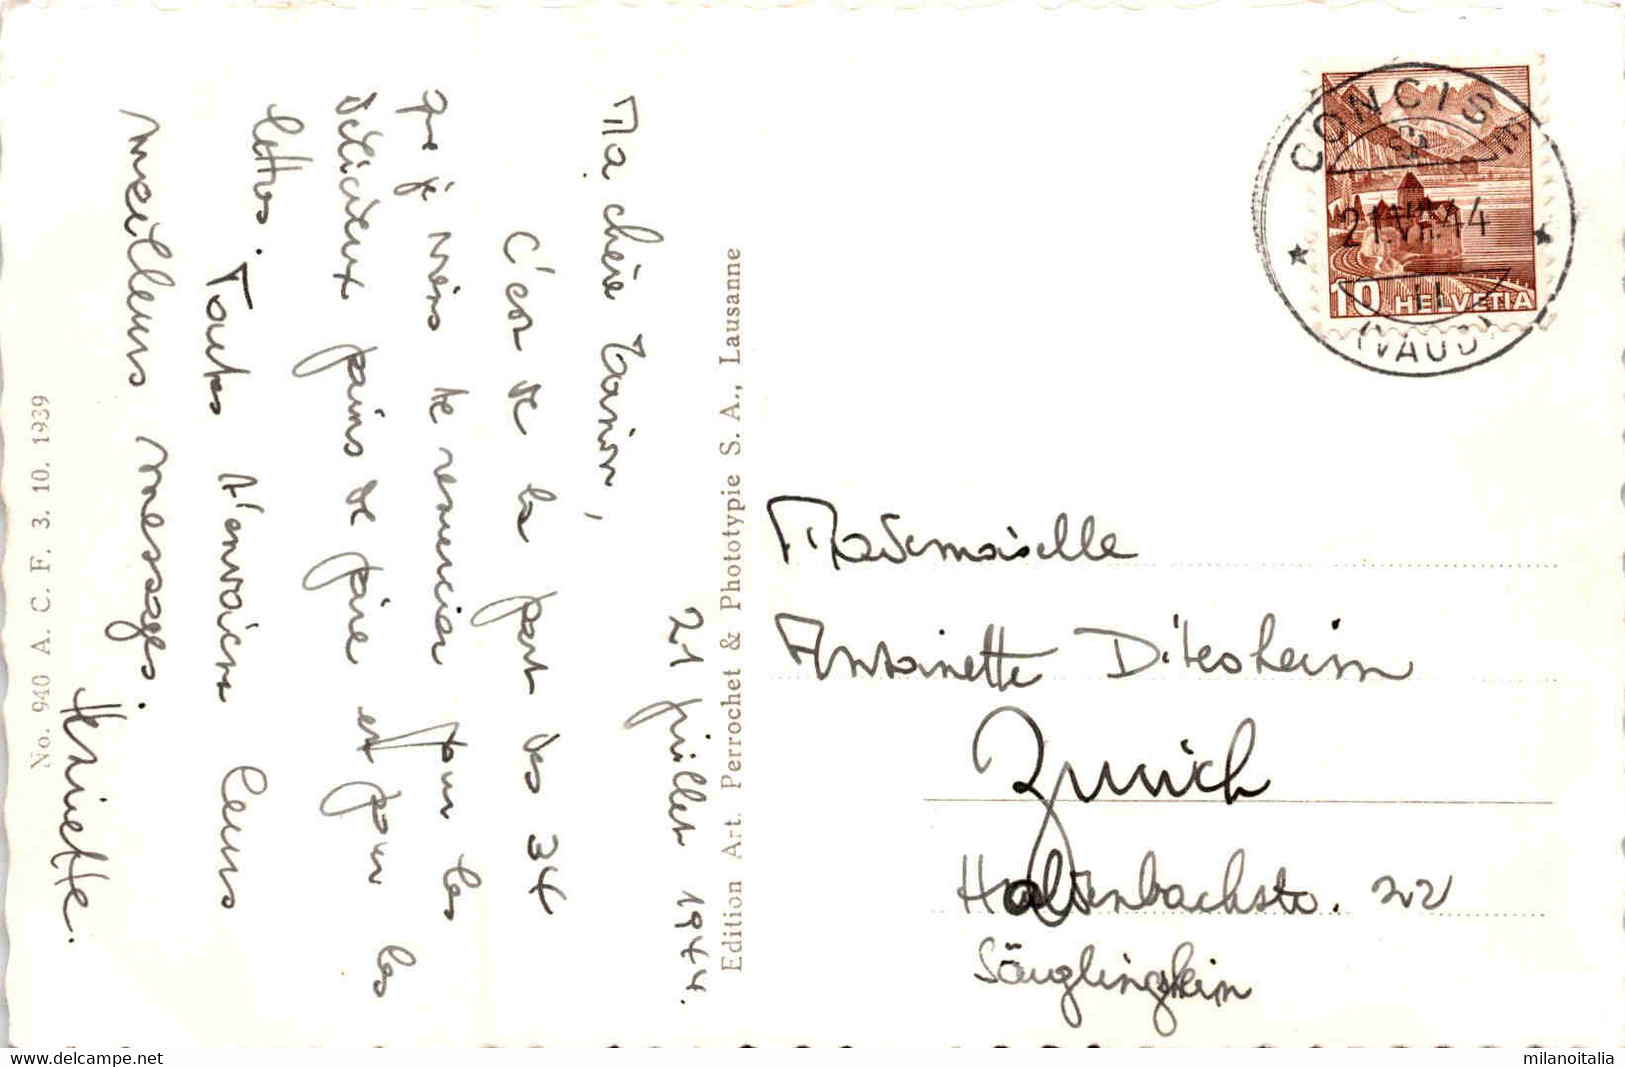 21 juillet 1944.
Ma chère Toinon,
C'est de la part des 34
que je viens te remercier pour les
délicieux pains de poire et pour les
lettres. Toutes t'envoient leurs
meilleurs messages.
Henriette.
No. 940 A. C. F. 3. 10. 1939
Edition Art. Perrochet & Phototypie S. A., Lausanne
CONCISE
21.VII.44
11
(VAUD)
10 HELVETIA
Mademoiselle
Antoinette Ditesheim
Zurich
Haldenbachstr. 22
Säuglingheim
www.delcampe.net
milanoitalia